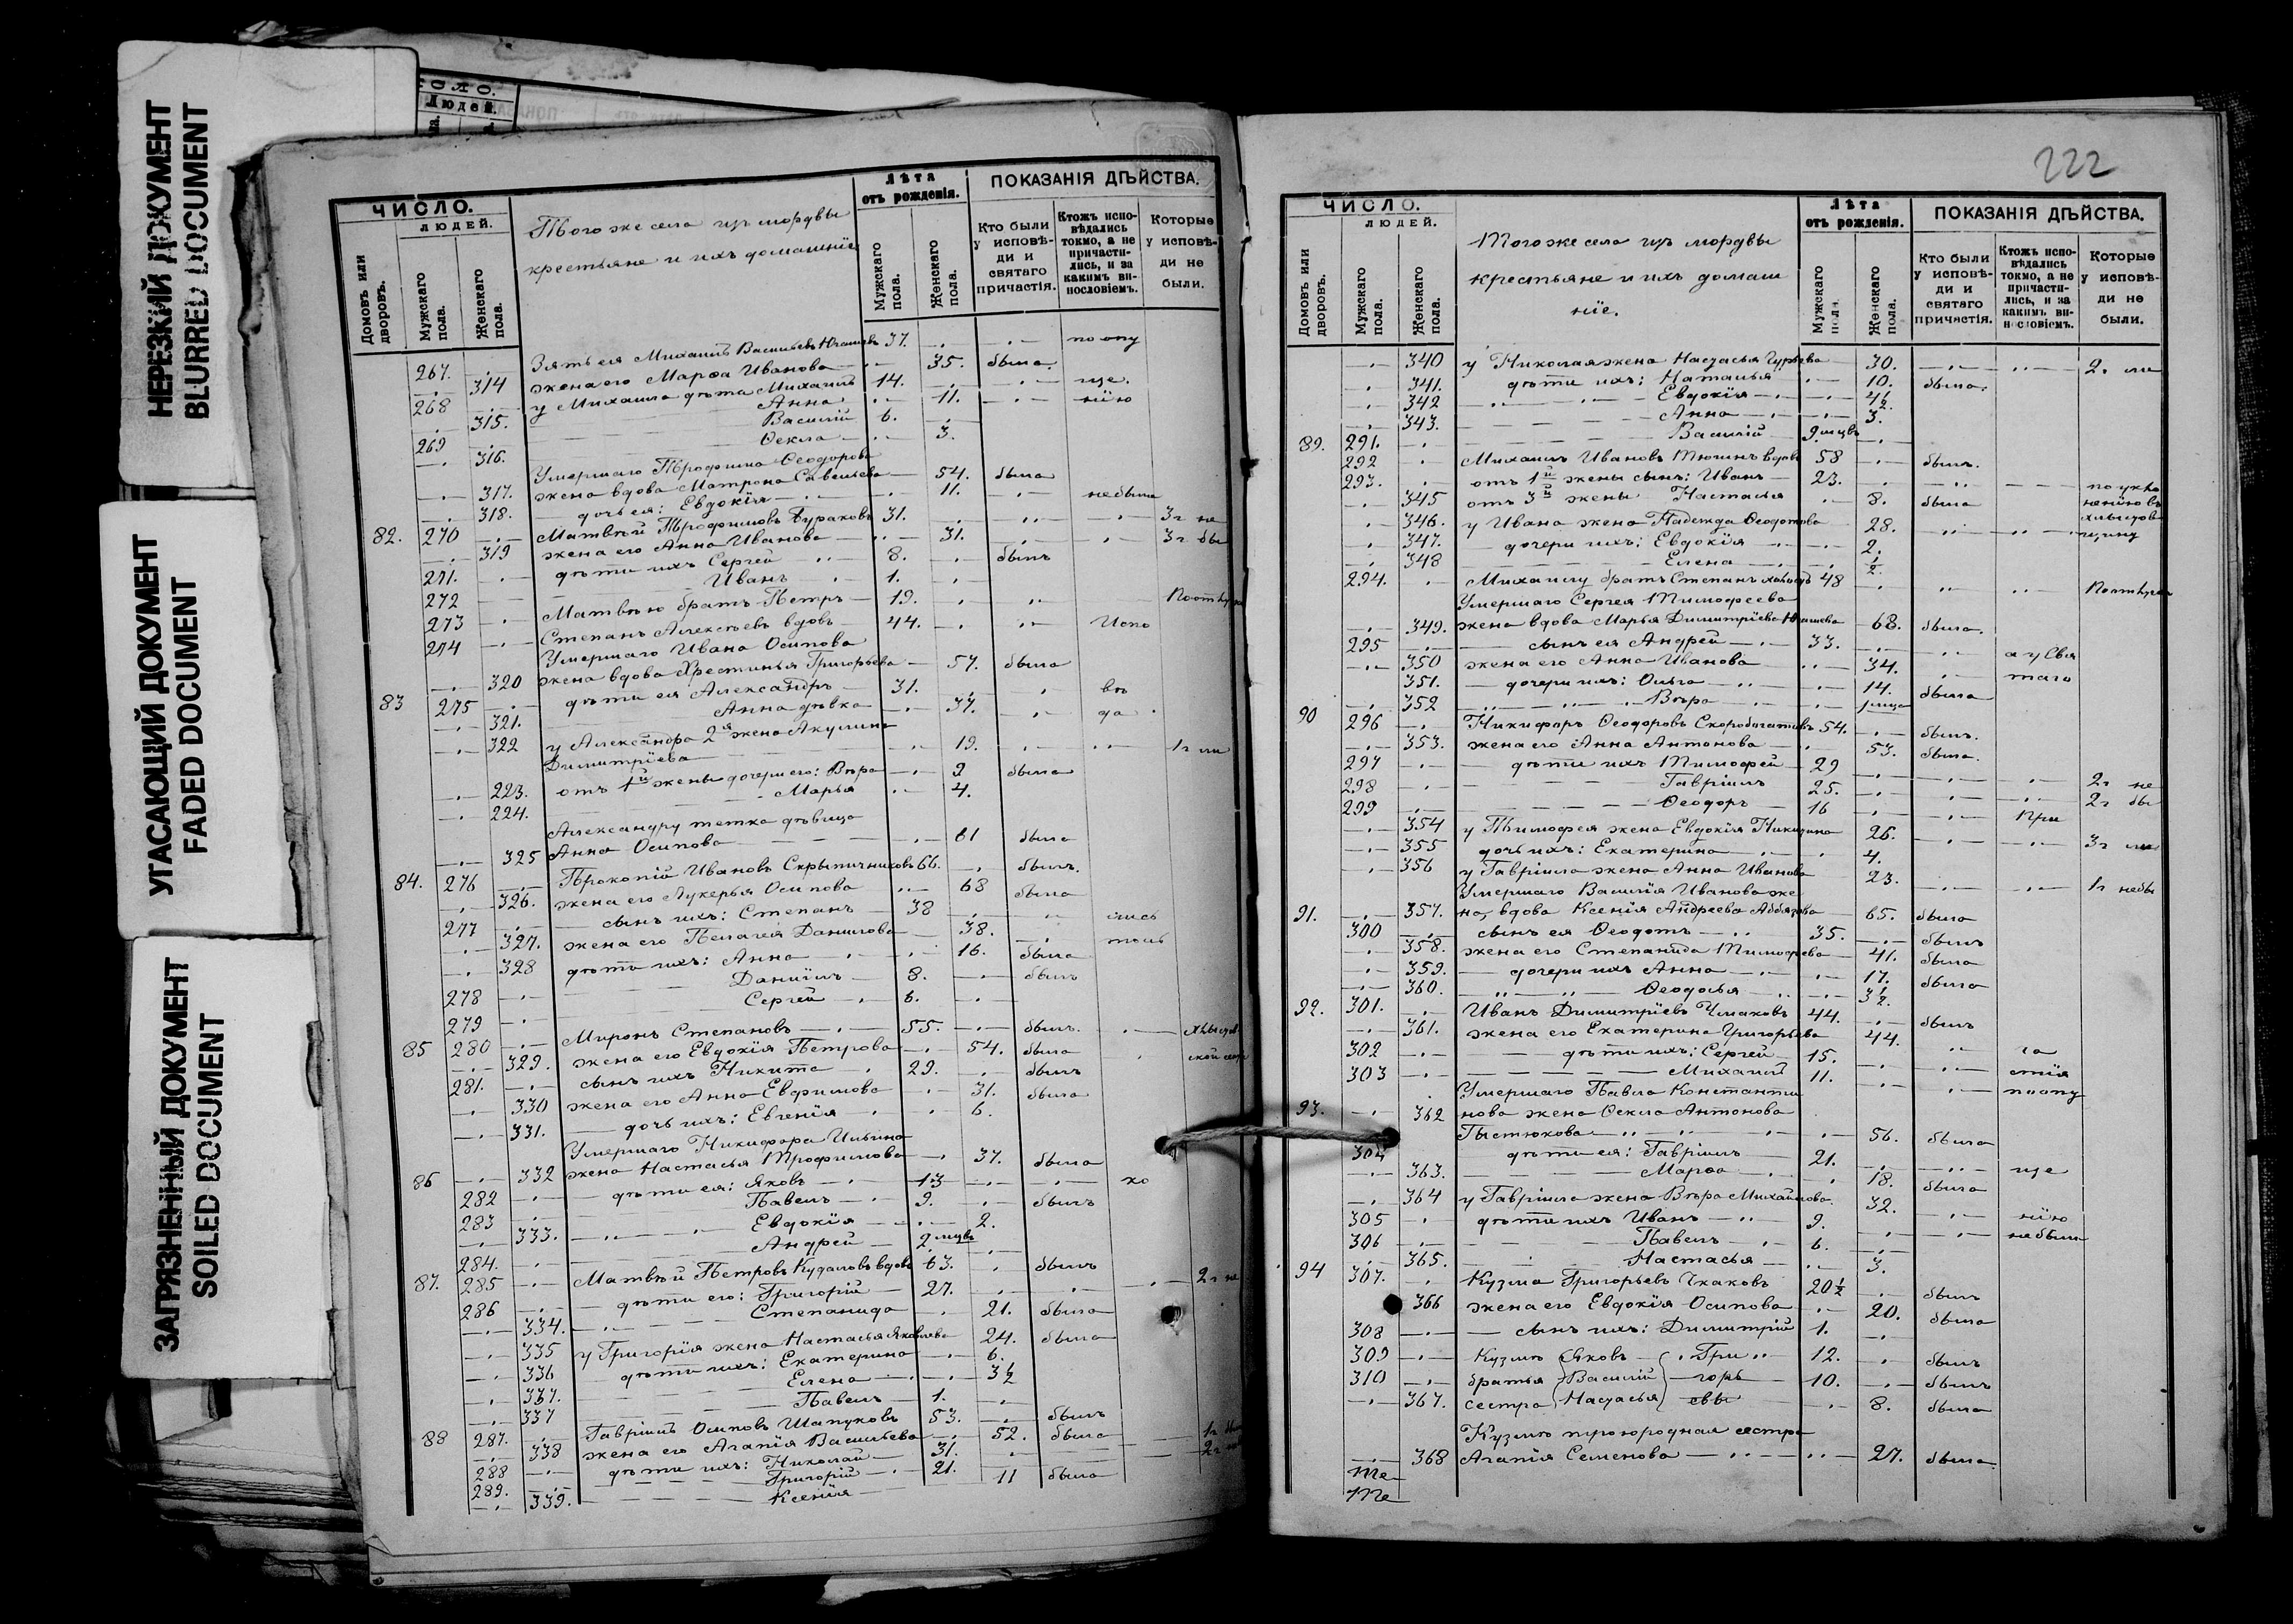 НЕРЕЗКИЙ ДОКУМЕНТ
BLURRED DOCUMENT
УГАСАЮЩИЙ ДОКУМЕНТ
FADED DOCUMENT
ЗАГРЯЗНЕННЫЙ ДОКУМЕНТ
SOILED DOCUMENT
Людей.
ЧИСЛО.
ЛЮДЕЙ.
Домовъ или дворовъ.
Мужскаго пола.
Женскаго пола.
Того же села изъ мордвы
крестьяне и ихъ домашніе
Лѣта
отъ рожденія.
Мужскаго пола.
Женскаго пола.
ПОКАЗАНІЯ ДѢЙСТВА.
Кто были у исповѣди и святаго причастія.
Ктожъ исповѣдались токмо, а не причастились, и за какимъ винословіемъ.
Которые у исповѣди не были.
267. Зять ея Михаилъ Васильевъ 37. по опу
314 жена его Марѳа Иванова 35. была.
268 у Михаила дѣти Михаилъ 14. ще.
315. Анна 11. нію
269 Василій 6.
316. Ѳекла 3.
Умершаго Трофима Ѳеодорова
317. жена вдова Матрона Савельева 54. была
318. дочь ея: Евдокія 11. не была
82. 270 Матвѣй Трофимовъ Бураковъ 31. 3 г не
319 жена его Анна Иванова 31. 3 г бы
271. дѣти ихъ Сергей 8. былъ
272 Иванъ 1.
273 Матвѣю братъ Петръ 19.
274 Степанъ Алексѣевъ вдовъ 44. Испо
Умершаго Ивана Осипова
320 жена вдова Хрестинья Григорьева 57. была
83 275 дѣти ея Александръ 31. вѣ
321. Анна дѣвка 37. да
322 у Александра 2я жена Акулина
Димитріева 19. 1 г ли
223. отъ 1й жены дочери его: Вѣра 9 была
224. Марья 4.
Александру тетка дѣвица
325 Анна Осипова 61 была
84. 276 Прокопій Ивановъ Скрыпичниковъ 66. былъ.
326. жена его Лукерья Осипова 68 была
277 сынъ ихъ: Степанъ 38 лись
327. жена его Пелагея Данилова 38. толь
328 дѣти ихъ: Анна 16. была
278 Даніилъ 8. былъ
279 Сергей 6.
85 280 Миронъ Степановъ 55. былъ.
329. жена его Евдокія Петрова 54. была
281. сынъ ихъ Никита 29. былъ
330 жена его Анна Евфимова 31. была
331. дочь ихъ: Евгенія 6.
Умершаго Никифора Ильина
86 332 жена Настасья Трофимова 37. была
282 дѣти ея: Яковъ 13 ко
283 Павелъ 9. былъ
333. Евдокія 2.
284. Андрей 2 мцвъ
87. 285 Матвѣй Петровъ Кудаловъ вдовъ 63. былъ
286 дѣти его: Григорій 27. 2 г не
334. Степанида 21. была
335 у Григорія жена Настасья Яковлева 24. была
336 дѣти ихъ: Екатерина 6.
337. Елена 3½
337 Павелъ 1.
88 287. Гавріилъ Осиповъ Шапуковъ 53. былъ
338 жена его Агапія Васильева 52. была
288 дѣти ихъ: Николай 31.
289. Григорій 21.
339. Ксенія 11 была
222
ЧИСЛО.
ЛЮДЕЙ.
Домовъ или дворовъ.
Мужскаго пола.
Женскаго пола.
Того же села изъ мордвы
крестьяне и ихъ домаш
ніе.
Лѣта
отъ рожденія.
Мужскаго пола.
Женскаго пола.
ПОКАЗАНІЯ ДѢЙСТВА.
Кто были у исповѣди и святаго причастія.
Ктожъ исповѣдались токмо, а не причастились, и за какимъ винословіемъ.
Которые у исповѣди не были.
340 у Николая жена Настасья Гурьева 30. 2. ли
341. дѣти ихъ: Наталья 10. была.
342 Евдокія 4½
343. Анна 3.
89. 291. Василій 9 мцвъ
292 Михаилъ Ивановъ Тюгинъ вдовъ 58 былъ.
293. отъ 1й жены сынъ: Иванъ 23.
345 отъ 3й жены Настасья 8. была
346. у Ивана жена Надежда Ѳеодотова 28.
347. дочери ихъ: Евдокія 2.
348 Елена ½.
294. Михаилу братъ Степанъ холостъ 48
Умершаго Сергея Тимофеева
349. жена вдова Марья Димитріева 68. была.
295 сынъ ея Андрей 33.
350 жена его Анна Иванова 34. а у Свя
351. дочери ихъ: Ольга 14. была таго
352 Вѣра
90 296 Никифоръ Ѳеодоровъ Скоробогатовъ 54. былъ.
353. жена его Анна Антонова 53. была.
297 дѣти ихъ Тимофей 29
298 Гавріилъ 25. 2 г не
299 Ѳеодоръ 16 При 2 г бы
354 у Тимофея жена Евдокія Никитина 26.
355 дочь ихъ: Екатерина 4. 3 г ли
356 у Гавріила жена Анна Иванова 23.
Умершаго Василія Иванова же 1 г небы
91. 357. на, вдова Ксенія Андреева Аббязова 65. была
300 сынъ ея Ѳеодотъ 35. былъ
358. жена его Степанида Тимофеева 41. была
359. дочери ихъ Анна 17. была
360. Ѳеодосья 3½.
92. 301. Иванъ Димитріевъ Чмаковъ 44. былъ
361. жена его Екатерина Григорьева 44.
302 дѣти ихъ: Сергей 15. ча
303 Михаилъ 11. стія
Умершаго Павла Константи по опу
93. 362 нова жена Ѳекла Антонова
Пыстюкова 56. была
304 дѣти ея: Гавріилъ 21.
363. Марѳа 18. была ще
364 у Гавріила жена Вѣра Михайлова 32.
305 дѣти ихъ Иванъ 9. нію
306 Павелъ 6. не были
365. Настасья 3.
94 307. Кузма Григорьевъ Чкаковъ 20½ былъ
366 жена его Евдокія Осипова 20. была
308 сынъ ихъ: Димитрій 1.
309 Кузмѣ Яковъ Гри 12. былъ
310 братья Василій горь 10. былъ
367. сестра Настасья евы 8. была
Кузмѣ троюродная сестра
368 Агапія Семенова 27. была